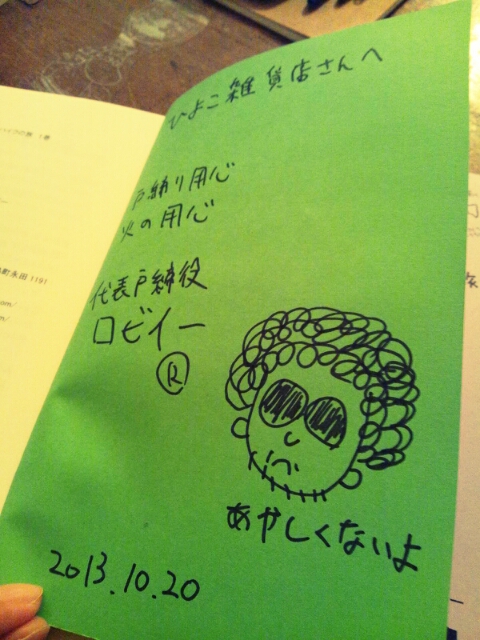 ひよこ雑貨店さんへ
戸締り用心
火の用心
代表戸締役
ロビイー
Ⓡ
あやしくないよ
2013.10.20
町永田1191